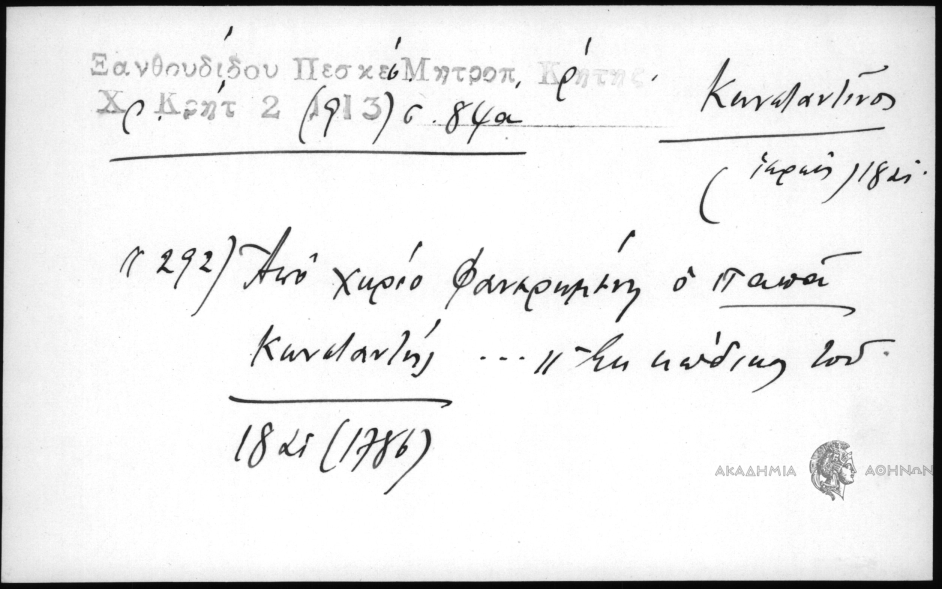 Ξανθουδίδου Πεσκέσ. Μητροπ. Κρήτης
Χρ. Κρήτ 2 (1913) σ. 84α
Κωνσταντῖνος
(ἱερεύς) 18 αἰ.
(292) Ἀπὸ χωριὸ Φανερωμένη ὁ παπᾶ
Κωνσταντής ... κώδικος τοῦ
18 αἰ (1786)
ΑΚΑΔΗΜΙΑ ΑΘΗΝΩΝ